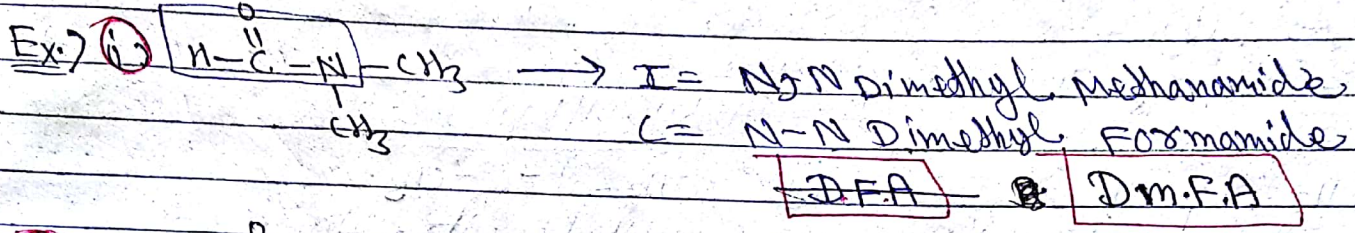 O
Ex.) (i) H-C-N-CH3 → I = N,N Dimethyl Methanamide
CH3 C = N-N Dimethyl Formamide
D.F.A Dm.F.A